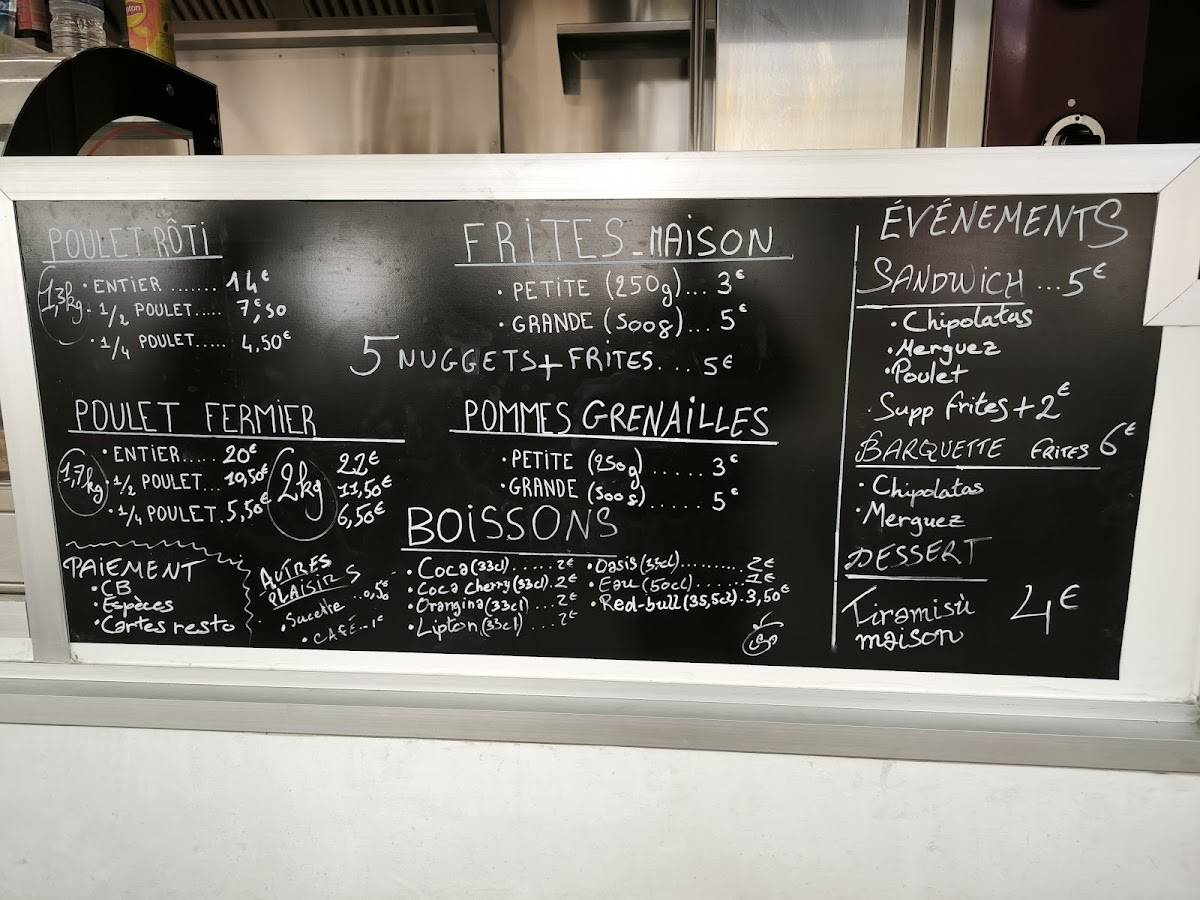 POULET RÔTI
1,3kg
• ENTIER ....... 14€
• 1/2 POULET..... 7€,50
• 1/4 POULET..... 4,50€
FRITES_MAISON
• PETITE (250g)... 3€
• GRANDE (500g)... 5€
5 NUGGETS + FRITES... 5€
POULET FERMIER
1,7kg
• ENTIER..... 20€
• 1/2 POULET... 10,50€
• 1/4 POULET. 5,50€
2kg
22€
11,50€
6,50€
POMMES GRENAILLES
• PETITE (250g)...... 3€
• GRANDE (500g)..... 5€
PAIEMENT
• CB
• Espèces
• Cartes resto
AUTRES
PLAISIRS
• Sucette ...0,50€
• CAFÉ...1€
BOISSONS
• Coca (33cl)...... 2€
• Coca cherry (33cl). 2€
• Orangina (33cl)... 2€
• Lipton (33cl).... 2€
• Oasis (33cl)......... 2€
• Eau (50cl)........ 1€
• Red-bull (35,5cl). 3,50€
ÉVÉNEMENTS
SANDWICH ...5€
• Chipolatas
• Merguez
• Poulet
. Supp frites + 2€
BARQUETTE FRITES 6€
• Chipolatas
• Merguez
DESSERT
Tiramisù
maison 4€